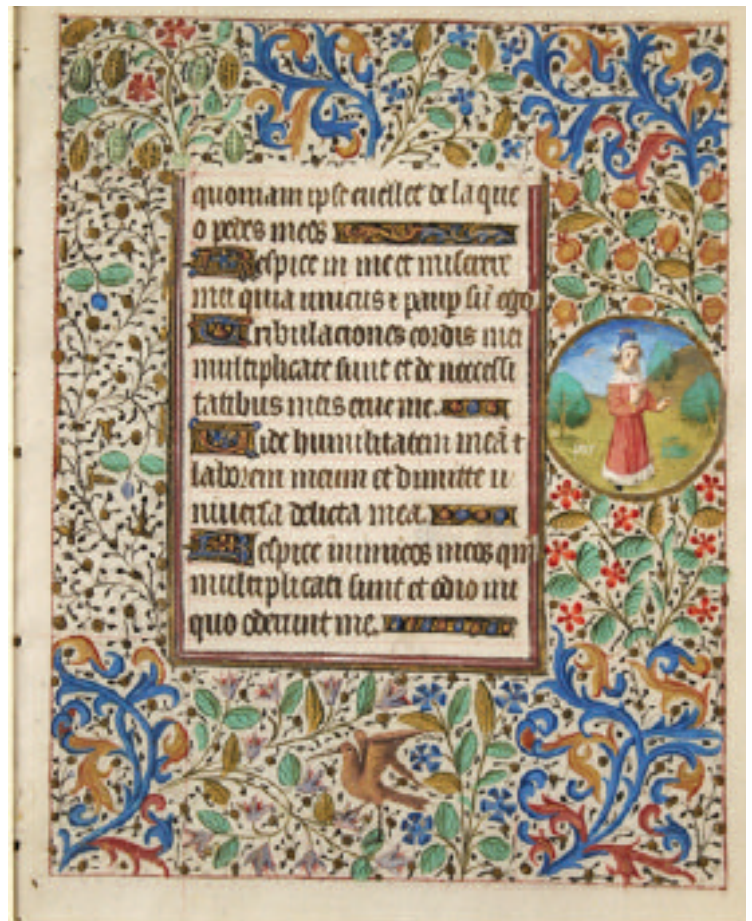 quoniam ipse evellet de laque
o pedes meos
Respice in me et miserere
mei quia unicus ⁊ paup sũ ego
Tribulaciones cordis mei
multiplicate sunt et de necessi
tatibus meis erue me.
Vide humilitatem meã ⁊
laborem meum et dimitte u
niuersa delicta mea.
Respice inimicos meos qm̃
multiplicati sunt et odio ini
quo oderunt me.